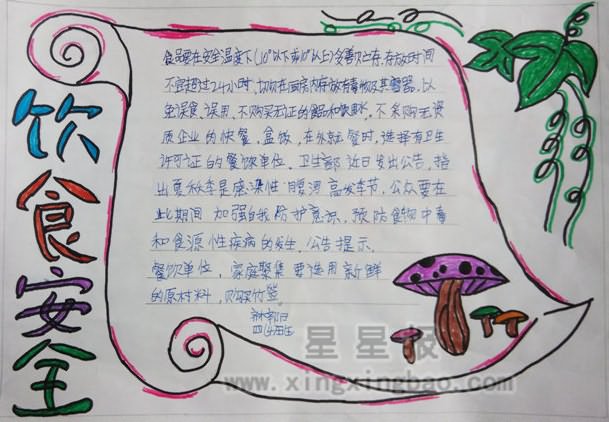 饮食安全
食品要在安全温度下(10°以下或60°以上)妥善贮存,存放时间
不宜超过24小时,切勿在厨房内存放有毒物及其容器,以
免误食、误用,不购买无证的食品和饮料,不采购无资
质企业的快餐、盒饭,在外就餐时,选择有卫生
许可证的餐饮单位。卫生部近日发出公告,指
出夏秋季是感染性腹泻高发季节,公众要在
此期间加强自我防护意识,预防食物中毒
和食源性疾病的发生。公告提示,
餐饮单位,家庭聚集要选用新鲜
的原材料,
星星报
www.xingxingbao.com